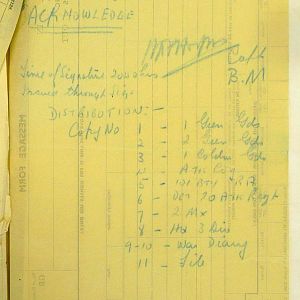 ACKNOWLEDGE
Capt
B.M
Time of Signature 2040 hrs
Issued through Sigs
DISTRIBUTION:-
Copy No
1 - 1 Gren Gds
2 - 2 Gren Gds
3 - 1 Coldm Gds
4 - A Tk Coy
5 - 101 Bty RA
6 - Det 20 A Tk Regt
7 - 2 Mx
8 - HQ 3 Div
9-10 - War Diary
11 - File
MESSAGE FORM